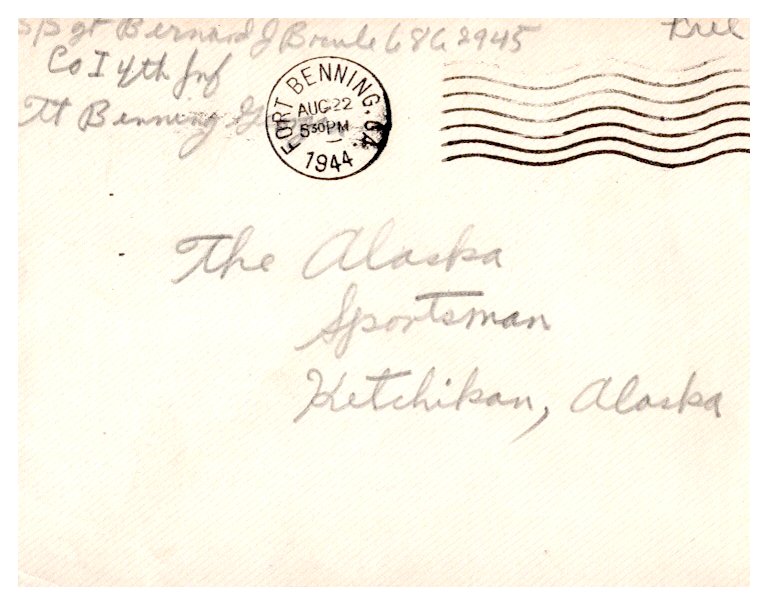 S/Sgt Bernard J 6862945
Free
Co I 4th Inf
Ft Benning Ga
FORT BENNING, GA.
AUG 22
5 30 PM
1944
The Alaska
Sportsman
Ketchikan, Alaska